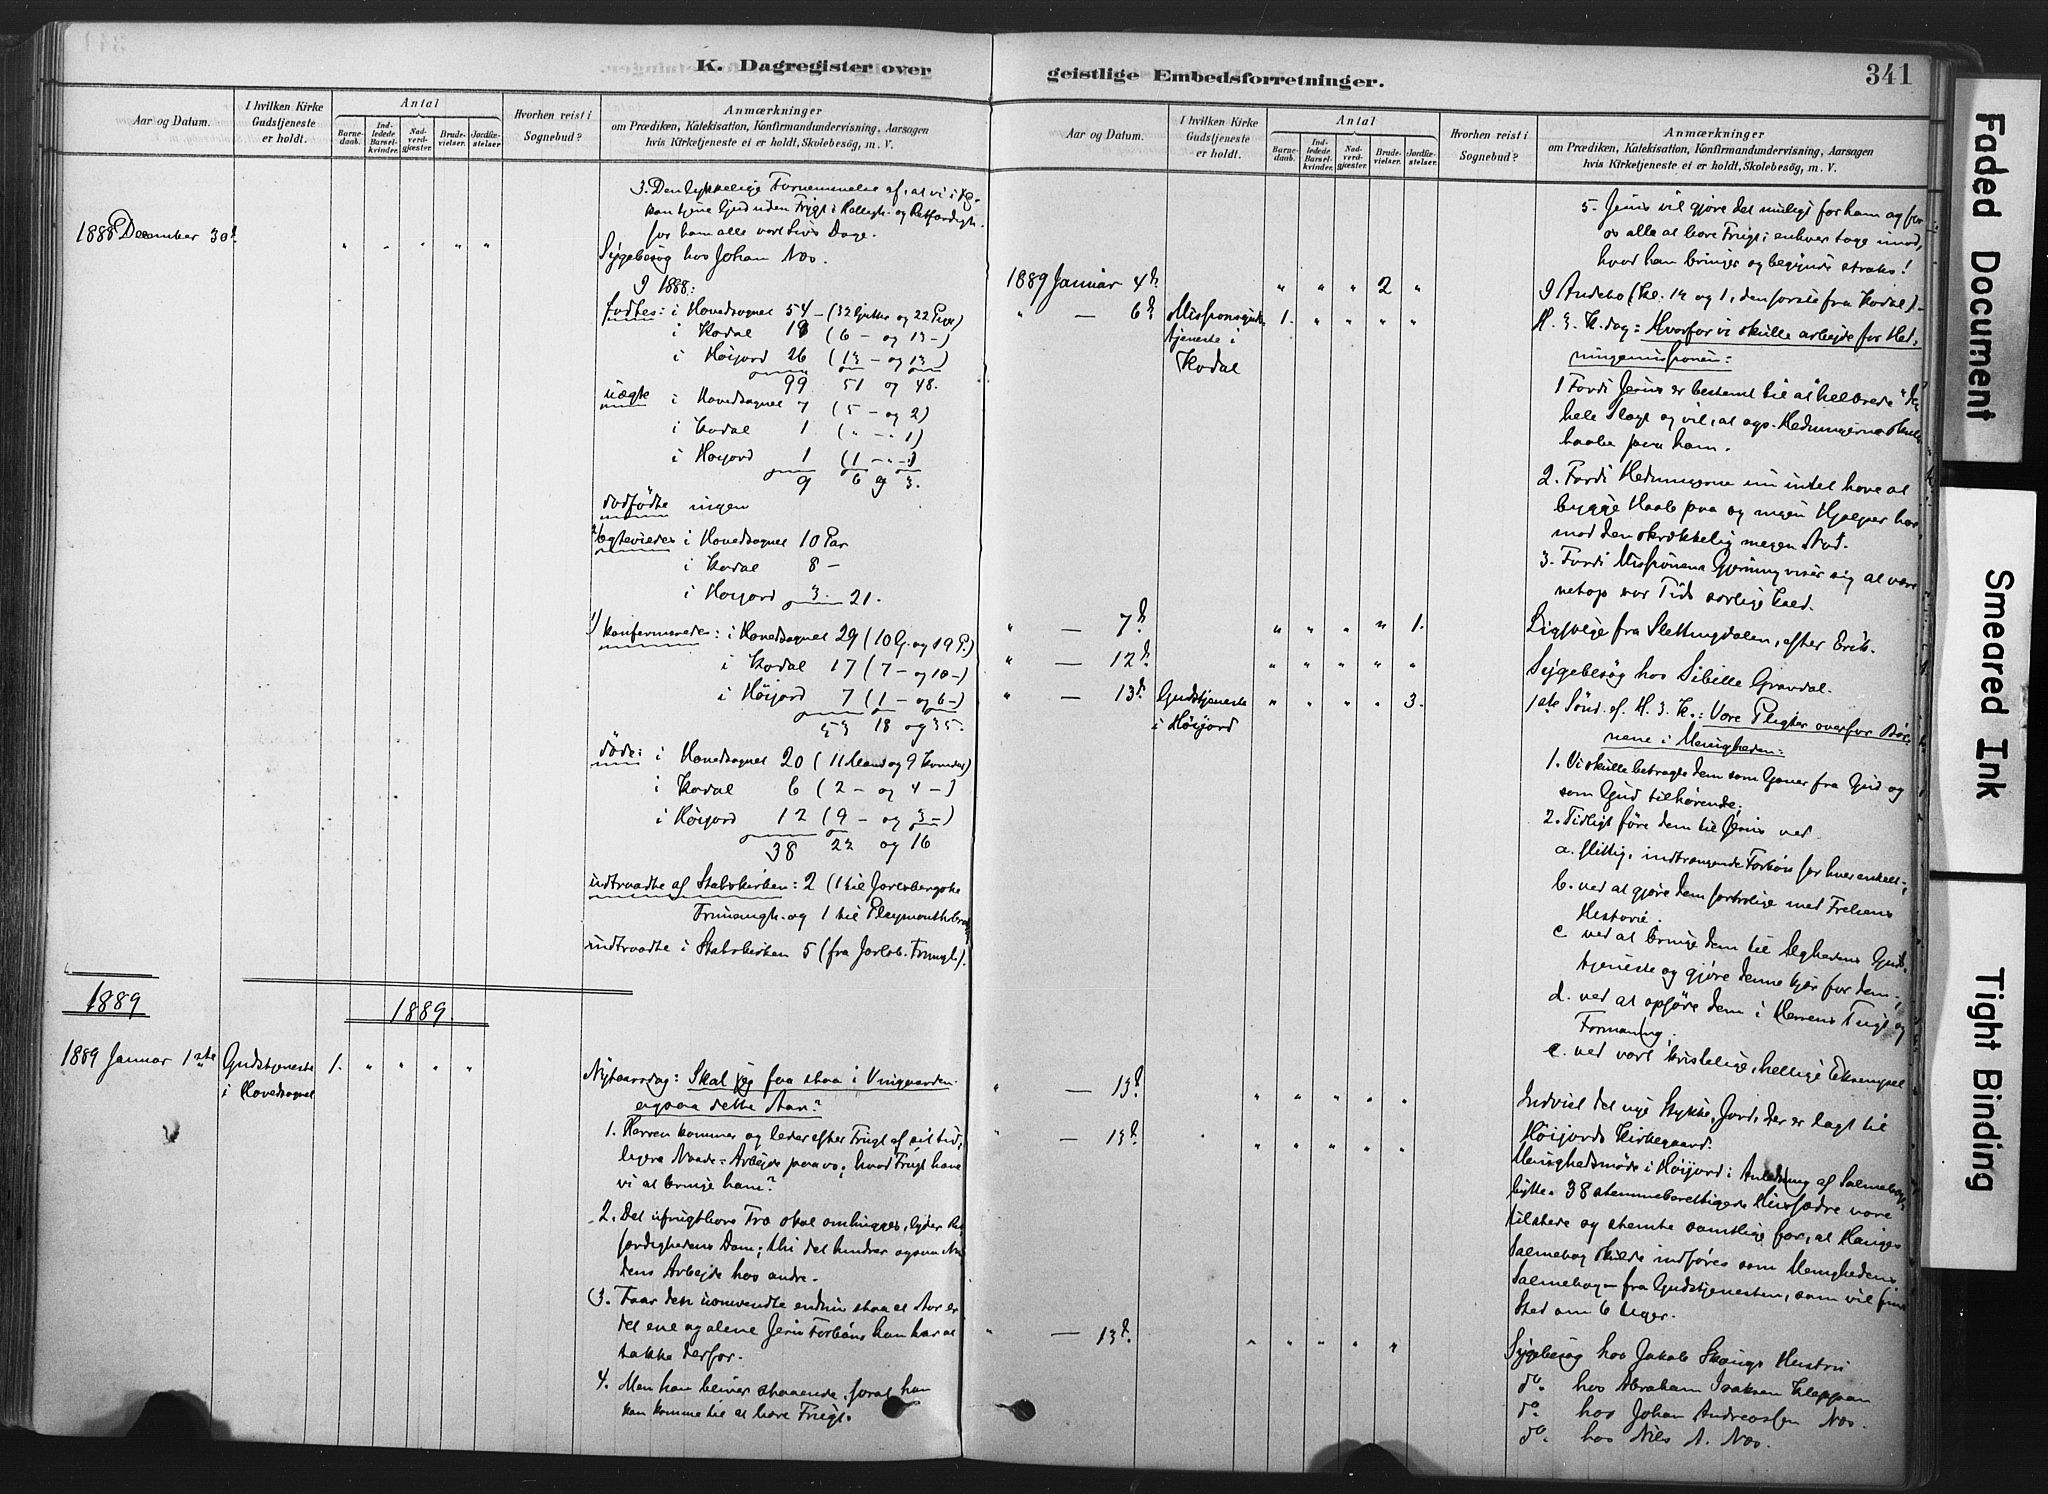 K. Dagregister over
geistlige Embedsforretninger.
341
Aar og Datum.
I hvilken Kirke Gudstjeneste er holdt.
Antal
Barnedaab.
Indledede Barselkvinder.
Nadverdgjæster.
Brudevielser.
Jordfæstelser
Hvorhen reist i Sognebud?
Anmærkninger
om Prædiken, Katekisation, Konfirmandundervisning, Aarsagen
hvis Kirketjeneste ei er holdt, Skolebesøg, m. V.
3. Den lykkelige Fornemmelse af, at vi i
kan tjene Gud uden Frygt i Helligh. og Retfærdigh.
for ham alle vort Livs Dage.
1888 December 30d " " " " " Sygebesøg hos Johan Næs.
I 1888:
fødtes: i Hovedsognet 54 – (32 Gutter og 22 Piger)
i Kodal 19 (6 – og 13 –)
i Høijord 26 (13 – og 13)
99 51 og 48.
uægte i Hovedsognet 7 (5 – og 2)
i Kodal 1 (" – " 1)
i Høijord 1 (1 – " –)
9 6 og 3.
dødfødte ingen
ægteviede i Hovedsognet 10 Par
i Kodal 8 –
i Høijord 3. 21.
konfirmerede: i Hovedsognet 29 (10 G. og 19 P.)
i Kodal 17 (7 – og 10 –)
i Høijord 7 (1 – og 6 –)
53 18 og 35.
døde: i Hovedsognet 20 (11 Mand og 9 Kvinder)
i Kodal 6 (2 – og 4 –)
i Høijord 12 (9 – og 3 –)
38 22 og 16
udtraadte af Statskirken: 2 (1 til Jarlsbergske
Frimenigh. og 1 til
indtraadte i Statskirken 5 (fra Jarlsb. Frimgh.)
1889
1889.
1889 Januar 1ste Gudstjeneste 1. " " " "
i Hovedsognet
Nytaarsdag: Skal jeg faa staa i Vingaarden
ogsaa dette Aar?
1. Herren kommer og leder efter Frugt af sit tid,
ligere Naade-Arbejde paa os; hvad Frugt have
vi at bringe ham?
2. Det ufrugtbare Træ skal omhugges, lyder Ret-
færdighedens Dom; thi det hindrer ogsaa Naa-
dens Arbejde hos andre.
3. Faar den uomvendte endnu staa et Aar er
det ene og alene Jesu Forbøn han har at
takke derfor.
4. Men han bliver staaende, forat han
kan komme til at bære Frugt.
Aar og Datum.
I hvilken Kirke Gudstjeneste er holdt.
Antal
Barnedaab.
Indledede Barselkvinder.
Nadverdgjæster.
Brudevielser.
Jordfæstelser.
Hvorhen reist i Sognebud?
Anmærkninger
om Prædiken, Katekisation, Konfirmandundervisning, Aarsagen
hvis Kirketjeneste ei er holdt, Skolebesøg, m. V.
5. Jesus vil gjøre det muligt for ham og for
os alle at bære Frugt; enhver tage imod,
hvad han bringer og begynde straks!
1889 Januar 4d " " " 2 " I Andebo (Kl. 12 og 1, den første fra Kodal)
" – 6d Missionsguds- 1. " " " "
tjeneste i
Kodal
H. 3. K. dag: Hvorfor vi skulle arbejde for Hed-
ningemissionen:
1 Fordi Jesus er bestemt til at "helbrede" den
hele Slægt og vil, at ogs. Hedningerne skulle
haabe paa ham.
2. Fordi Hedningerne nu intet have at
bygge Haab paa og ingen Hjælper har
mod den skrækkelig megen Nød.
3. Fordi Missionens Gjerning viser sig at være
netop vor Tids særlige Kald.
" – 7d " " " " 1. Ligfølge fra Slettingdalen, efter Erik.
" – 12d " " " " " Sygebesøg hos Sibille Gravdal.
" – 13d Gudstjeneste " " " " 3.
i Høijord
1ste Sønd. ef. H. 3. K.: Vore Pligter overfor Bør-
nene i Menigheden:
1. Vi skulle betragte dem som Gaver fra Gud og
som Gud tilhørende;
2. Tidligt føre dem til Jesus ved
a. flittig, indtrængende Forbøn for hver enkelt;
b. ved at gjøre dem fortrolige med Frelsens
Historie.
c. ved at bringe dem til Mghedens Guds-
tjeneste og gjøre denne kjær for dem;
d. ved at opføre dem i Herrens Tugt og
Formaning;
e. ved vort kristelige, hellige Eksempel
" – 13d " " " " " Indviet det nye Stykke Jord, der er lagt til
Høijords Kirkegaard.
" – 13d " " " " " Menighedsmøde i Høijord i Anledning af Salmebog-
bytte. 38 stemmeberettigede Husfædre vare
tilstede og stemte samtlige for, at Hauges
Salmebog skulde indføres som Menighedens
Salmebog – fra Gudstjenesten, som vil finde
Sted om 6 Uger.
" – 13d " " " " Sygebesøg hos Jakob Skaugs Hustru
do. hos Abraham Isaksen Kleppan
do. hos Johan Andreassen Næs.
do. hos Nils A. Næs.
Faded Document
Smeared Ink
Tight Binding